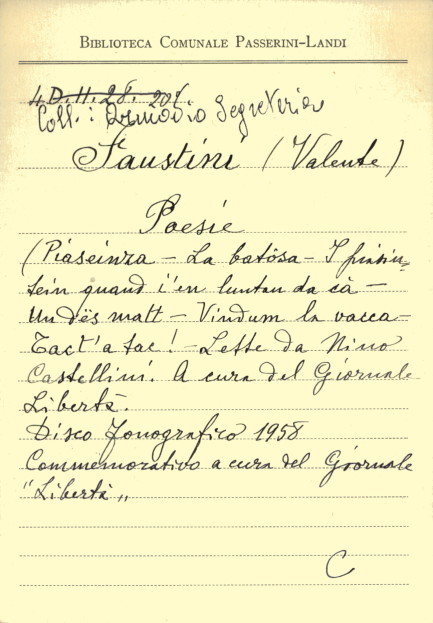 BIBLIOTECA COMUNALE PASSERINI-LANDI
4 D. II. 28. 201.
Coll.: Armadio Segreteria
Faustini (Valente)
Poesie
(Piaseinza - La batôsa - I piasin=
tein quand i'en luntan da cà -
Un dës matt - Vindum la vacca -
Tact' a tac! - Lette da Nino
Castellini. A cura del Giornale
Libertà.
Disco fonografico 1958
Commemorativo a cura del Giornale
"Libertà"
C